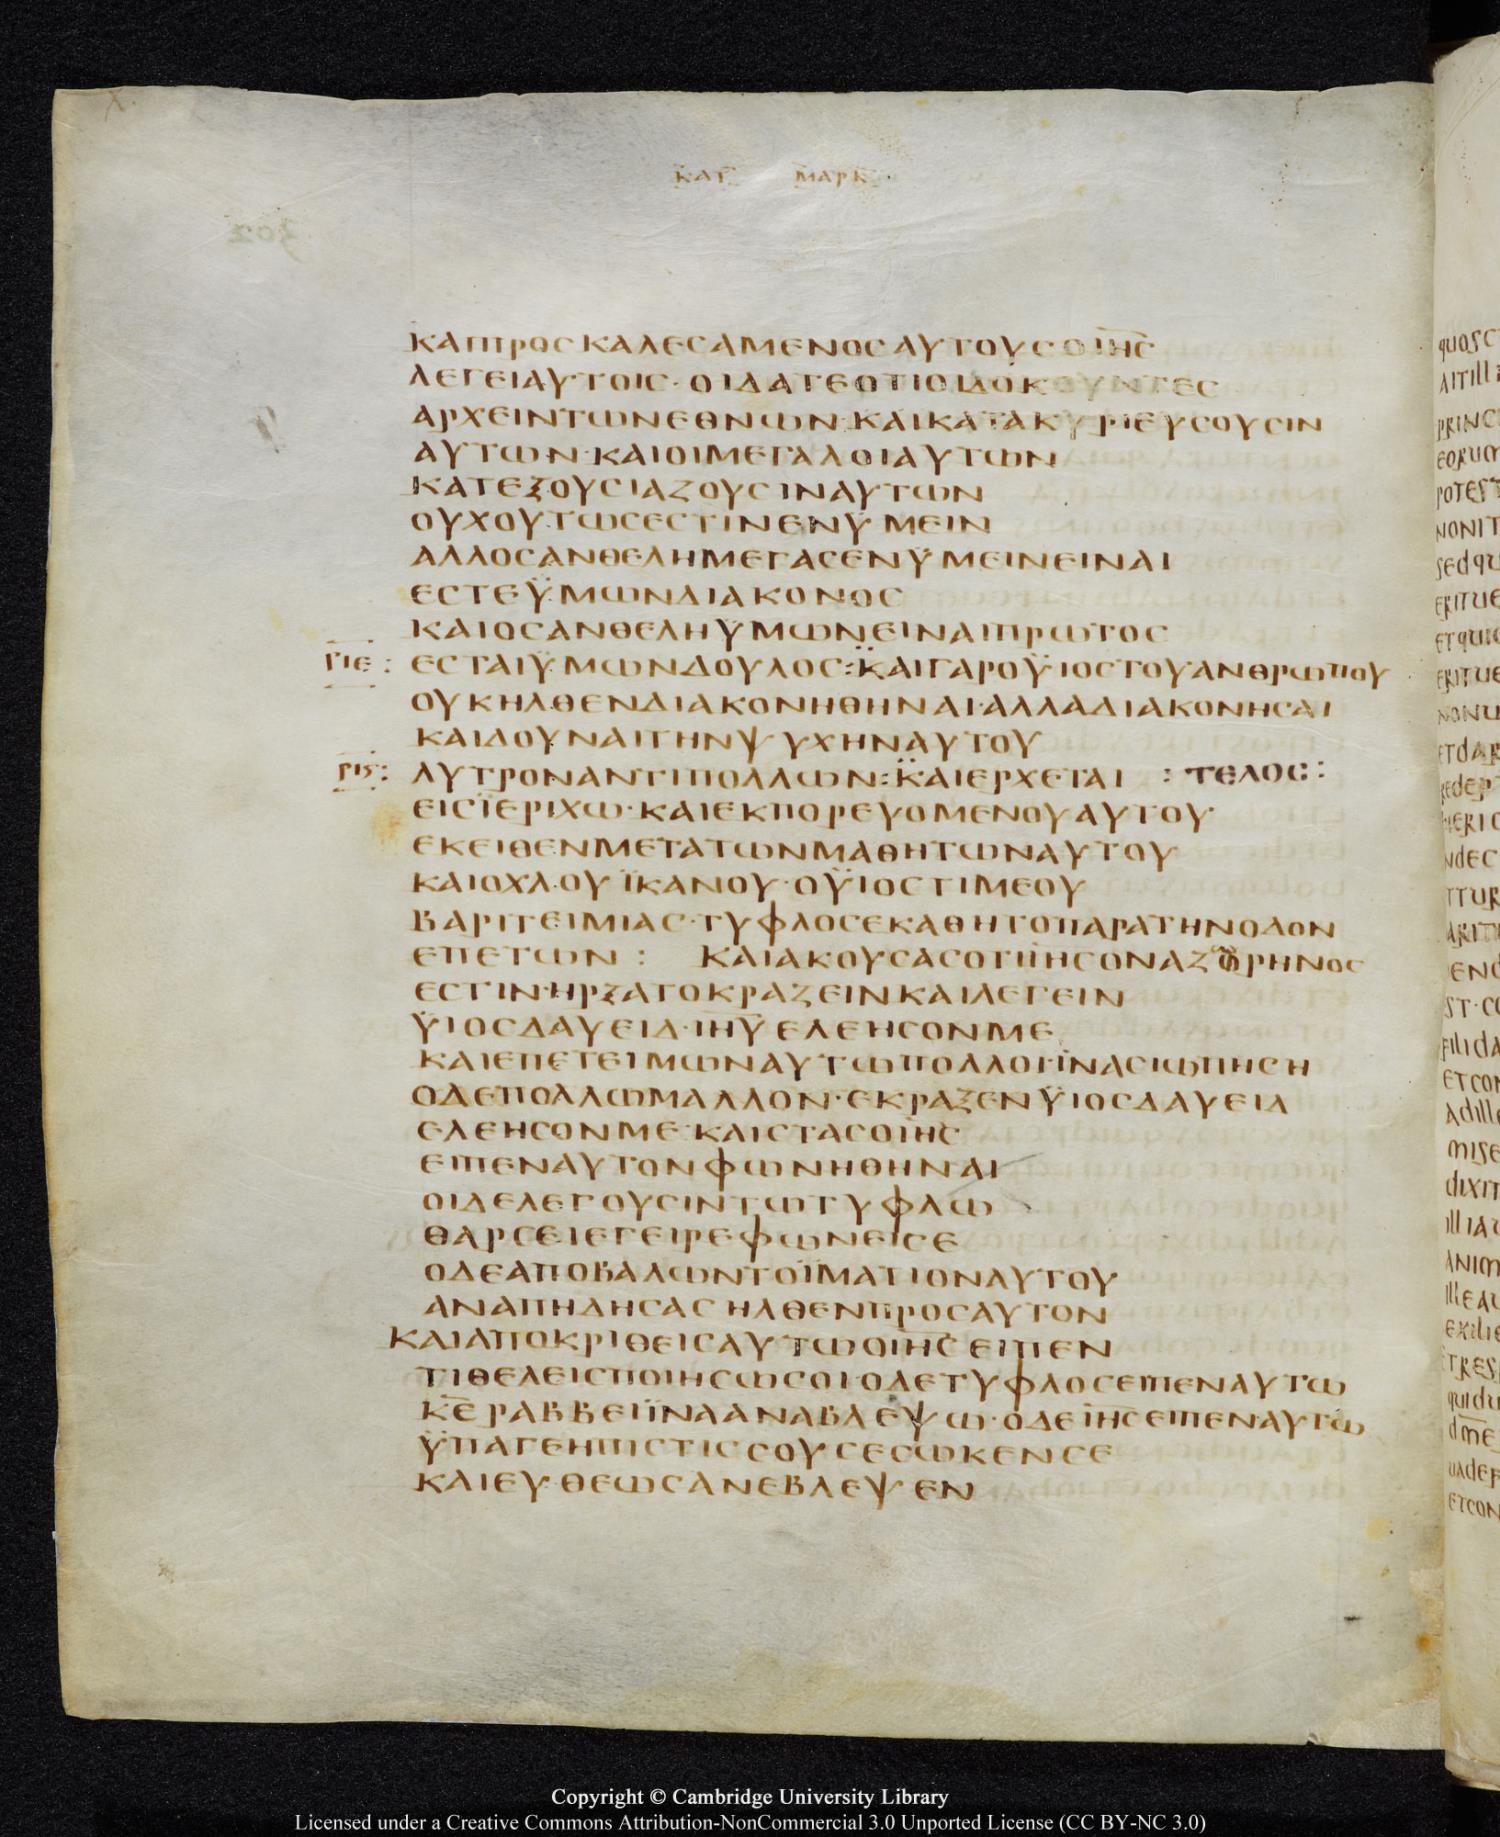 ΚΑΤ ΜΑΡΚ
ΚΑΙΠΡΟΣΚΑΛΕΣΑΜΕΝΟΣΑΥΤΟΥΣΟΙΗΣ
ΛΕΓΕΙΑΥΤΟΙΣ·ΟΙΔΑΤΕΟΤΙΟΙΔΟΚΟΥΝΤΕΣ
ΑΡΧΕΙΝΤΩΝΕΘΝΩΝ·ΚΑΙΚΑΤΑΚΥΡΙΕΥΣΟΥΣΙΝ
ΑΥΤΩΝ·ΚΑΙΟΙΜΕΓΑΛΟΙΑΥΤΩΝ
ΚΑΤΕΞΟΥΣΙΑΖΟΥΣΙΝΑΥΤΩΝ
ΟΥΧΟΥΤΩΣΕΣΤΙΝΕΝΫΜΕΙΝ
ΑΛΛΟΣΑΝΘΕΛΗΜΕΓΑΣΕΝΫΜΕΙΝΕΙΝΑΙ
ΕΣΤΕΫΜΩΝΔΙΑΚΟΝΟΣ
ΚΑΙΟΣΑΝΘΕΛΗΥΜΩΝΕΙΝΑΙΠΡΩΤΟΣ
ΡΙΕ: ΕΣΤΑΙΫΜΩΝΔΟΥΛΟΣ:ΚΑΙΓΑΡΟΫΙΟΣΤΟΥΑΝΘΡΩΠΟΥ
ΟΥΚΗΛΘΕΝΔΙΑΚΟΝΗΘΗΝΑΙ·ΑΛΛΑΔΙΑΚΟΝΗΣΑΙ
ΚΑΙΔΟΥΝΑΙΤΗΝΨΥΧΗΝΑΥΤΟΥ
ΡΙϚ: ΛΥΤΡΟΝΑΝΤΙΠΟΛΛΩΝ:ΚΑΙΕΡΧΕΤΑΙ :ΤΕΛΟΣ:
ΕΙΣΪΕΡΙΧΩ·ΚΑΙΕΚΠΟΡΕΥΟΜΕΝΟΥΑΥΤΟΥ
ΕΚΕΙΘΕΝΜΕΤΑΤΩΝΜΑΘΗΤΩΝΑΥΤΟΥ
ΚΑΙΟΧΛΟΥΪΚΑΝΟΥ·ΟΫΙΟΣΤΙΜΕΟΥ
ΒΑΡΙΤΕΙΜΙΑΣ·ΤΥΦΛΟΣΕΚΑΘΗΤΟΠΑΡΑΤΗΝΟΔΟΝ
ΕΠΕΤΩΝ: ΚΑΙΑΚΟΥΣΑΣΟΤΙΙΗΣΟΝΑΖΟΡΗΝΟΣ
ΕΣΤΙΝ·ΗΡΞΑΤΟΚΡΑΖΕΙΝΚΑΙΛΕΓΕΙΝ
ΫΙΟΣΔΑΥΕΙΔ·ΙΗΥΕΛΕΗΣΟΝΜΕ
ΚΑΙΕΠΕΤΕΙΜΩΝΑΥΤΩΠΟΛΛΟΙ·ΪΝΑΣΙΩΠΗΣΗ
ΟΔΕΠΟΛΛΩΜΑΛΛΟΝ·ΕΚΡΑΞΕΝΫΙΟΣΔΑΥΕΙΔ
ΕΛΕΗΣΟΝΜΕ·ΚΑΙΣΤΑΣΟΙΗΣ
ΕΙΠΕΝΑΥΤΟΝΦΩΝΗΘΗΝΑΙ
ΟΙΔΕΛΕΓΟΥΣΙΝΤΩΤΥΦΛΩ
ΘΑΡΣΕΙΕΓΕΙΡΕΦΩΝΕΙΣΕ
ΟΔΕΑΠΟΒΑΛΩΝΤΟΪΜΑΤΙΟΝΑΥΤΟΥ
ΑΝΑΠΗΔΗΣΑΣΗΛΘΕΝΠΡΟΣΑΥΤΟΝ
ΚΑΙΑΠΟΚΡΙΘΕΙΣΑΥΤΩΟΙΗΣΕΙΠΕΝ
ΤΙΘΕΛΕΙΣΠΟΙΗΣΩΣΟΙ·ΟΔΕΤΥΦΛΟΣΕΙΠΕΝΑΥΤΩ
ΚΕΡΑΒΒΕΙΪΝΑΑΝΑΒΛΕΨΩ·ΟΔΕΙΗΣΕΙΠΕΝΑΥΤΩ
ΫΠΑΓΕΗΠΙΣΤΙΣΣΟΥΣΕΣΩΚΕΝΣΕ
ΚΑΙΕΥΘΕΩΣΑΝΕΒΛΕΨΕΝ
Copyright © Cambridge University Library
Licensed under a Creative Commons Attribution-NonCommercial 3.0 Unported License (CC BY-NC 3.0)